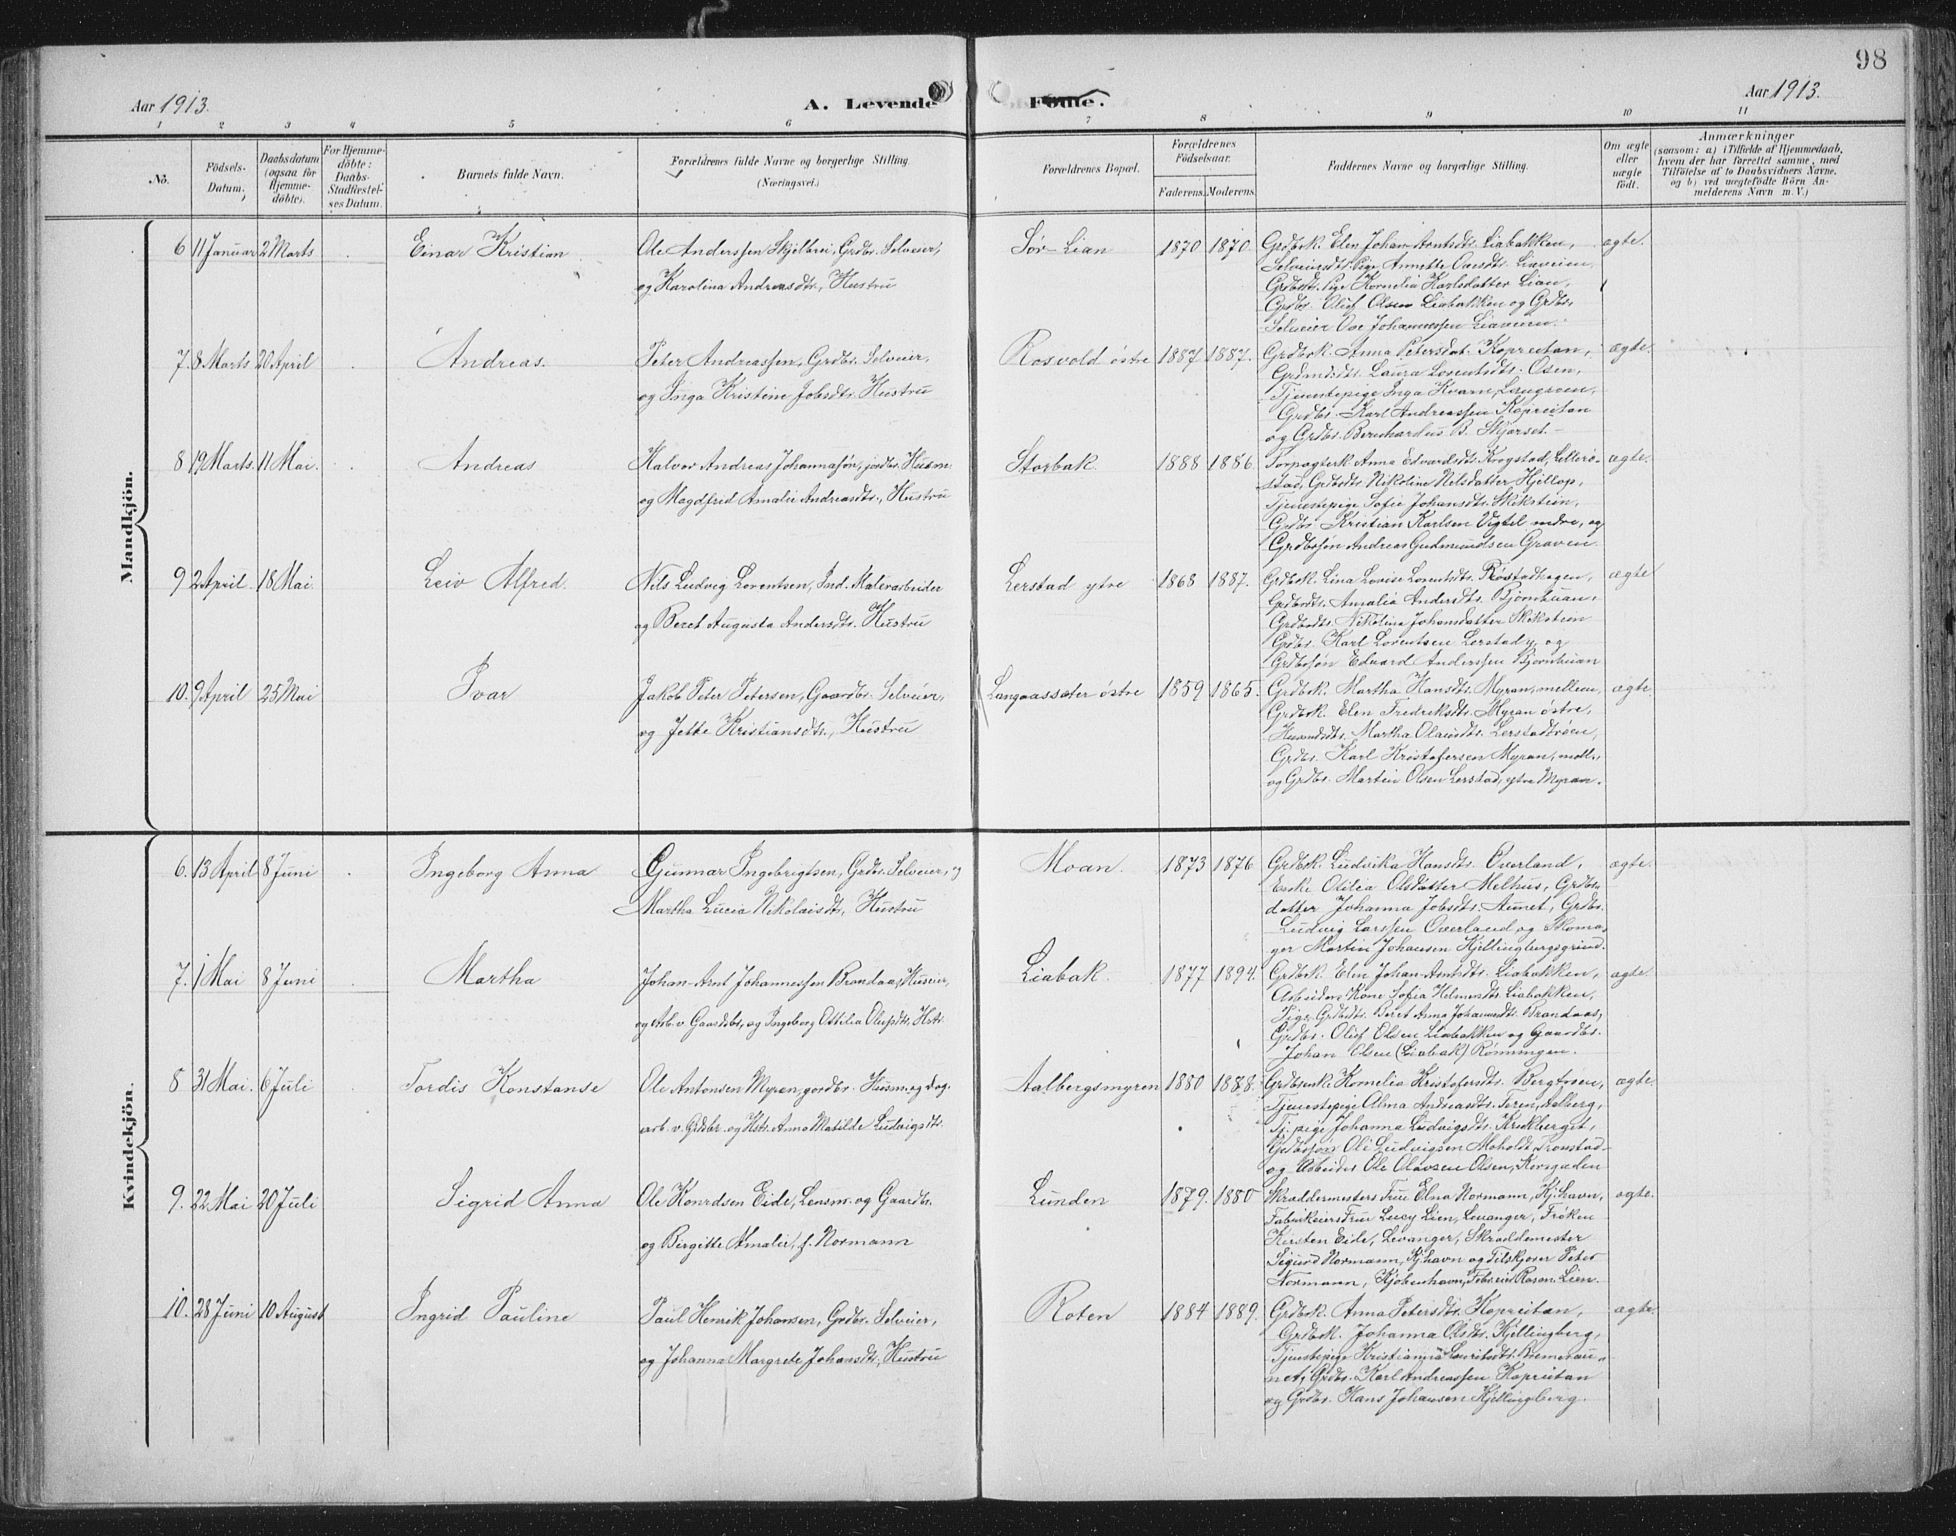 98
Aar 1913.
A. Levende Fødte.
Aar 1913.
1 2 3 4 5 6 7 8 9 10 11
No.
Födsels-
Datum.
Daabsdatum
(ogsaa for
Hjemme-
döbte).
For Hjemme-
döbte:
Daabs-
Stadfæstel-
ses Datum.
Barnets fulde Navn.
Forældrenes fulde Navne og borgerlige Stilling.
(Næringsvei.)
Forældrenes Bopæl.
Forældrenes
Födselsaar.
Faderens. Moderens.
Faddernes Navne og borgerlige Stilling.
Om ægte
eller
uægte
födt.
Anmærkninger
(saasom: a) i Tilfælde af Hjemmedaab,
hvem der har forrettet samme, med
Tilföielse af to Daabsvidners Navne,
og b) ved uægtefödte Börn An-
melderens Navn m. V.)
Mandkjön.
6 11 Januar 2 Marts Einar Kristian Ole Anderssen Skjelbrei, Grdbr. Selveier,
og Karolina Andreasdtr., Hustru
Sör-Lian 1870 1870 Grdbrk. Elen Johan-Arntsdtr. Liabakken, ægte.
Selveiersdtr. Pige Annette Ovesdtr. Liaveien,
Grdbrdt. Pige Kornelia Karlsdatter Lian,
Grdbr. Oluf Olsen Liabakken og Grdbr.
Selveier Ove Johannessen Liaveien.
7. 8 Marts 20 April Andreas. Peter Andreassen, Grdbr. Selveier,
og Inga Kristine Jobsdtr. Hustru
Rosvold östre 1887 1887. Grdbrk. Anna Petersdat. Kopreitan, ægte.
Laura Lorentsdtr. Osen,
Tjenestepige Inga Kvarn,
Grdbr. Karl Andreassen Kopreitan
og Grdbr. Bernhardus B. Skjörset.
8 19 Marts. 11 Mai. Andreas Halvor Andreas Johannessön, jordbr. Husm.
og Magdfrid Amalie Andreasdtr., Hustru
Storbak. 1888 1886. Forpagterk. Anna Edvardsdtr. Krogstad, Lillerö- ægte.
stad, Grdbrdtr. Nikoline Nilsdatter Hjellop,
Tjenestepige Sofie Johansdtr. Skikstien,
Grdbr. Kristian Karlsen Vigtil nedre, og
Grdbrsön Andreas Gudmundsen Graven.
9 2 April. 18 Mai. Leiv Alfred. Nils Ludvig Lorentsen, Ind. Malerarbeider
og Beret Augusta Andersdtr. Hustru
Lerstad ytre 1868 1887. Grdbrk. Lina Lovise Lorentsdtr. Röstadhagen, ægte
Grdbrdtr. Amalia Andersdtr. Björnhuan,
Grdbrdtr. Nikolina Johansdatter Skikstien
Grdbr. Karl Lorentsen Lerstad y. og
Grdbrsön Edvard Anderssen Björnhuan
10. 9 April 25 Mai Ivar Jakob Peter Petersen, Gaardbr. Selveier,
og Jette Kristiansdtr., Hustru
Langaassæter östre 1859 1865. Grdbrk. Martha Hansdtr. Myran, mellem, ægte.
Grdbrk. Elen Fredriksdtr. Myran östre,
Husmdtr. Martha Olausdtr. Lerstadöien,
Grdbr. Karl Kristofersen Myran, mell.,
og Grdbr. Martin Olsen Lerstad, ytre Myran.
Kvindekjön.
6. 13 April 8 Juni Ingeborg Anna Gunnar Ingebrigtsen, Grdbr. Selveier, og
Martha Lucia Nikolaisdtr., Hustru
Moan. 1873 1876 Grdbrk. Ludvika Hansdtr. Overland, ægte.
Enke Otilia Olsdatter Melhus, Grdbr.
datter Johanna Jobsdtr. Aunet, Grdbr.
Ludvig Larssen Overland og Skoma-
ger Martin Johansen Kjellingbergsgrind.
7. 1 Mai 8 Juni Martha Johan-Arnt Johannessen Brandaas, Huseier,
og Arb. v. Gaardsbr., og Ingeborg Ottilia Olufsdtr. Hstr.
Liabak. 1877 1894. Grdbrk. Elen Johan-Arntsdtr. Liabakken, ægte
Arbeiders Kone Sofia Helmersdtr. Liabakken,
Pige Grdbrdtr. Beret Anna Johannesdtr. Brandaas,
Grdbr. Oluf Olsen Liabakken og Gaardbr.
Johan Olsen (Liabak) Rönningen.
8 31 Mai. 6 Juli Tordis Konstanse Ole Antonsen Myran, jordbr. Husm. og Dag-
arb. v. Grdsbr. og Hstr. Anna Matilde Ludvigsdtr.
Aalbergsmyren 1880 1888. Grdbrenk. Kornelia Kristofersdtr. Bergtröen, ægte
Tjenestepige Alma Andreasdtr. Aalberg,
Tj. pige Johanna Ludvigsdtr. Krekberget,
Grdbrsön Ole Ludvigsen Moholdt, Tronstad
og Arbeider Ole Olavsen Olsen, Korsgaden
9. 22 Mai 20 Juli Sigrid Anna Ole Konrdsen Eide, Lensm. og Gaardbr.
og Birgitte Amalie, f. Normann
Lunden 1879. 1880 Skræddermesters Frue Elna Normann, Kj.havn, ægte.
Fabrikeiers Frue Lucy Lien, Levanger, Fröken
Kirsten Eide, Levanger, Skræddemester
Sigurd Normann, Kj.havn og Tilskjærer Peter
Normann, Kjöbenhavn, Fabr.eier Lien.
10. 28 Juni 10 August Ingrid Pauline Paul Henrik Johansen, Grdbr. Selveier,
og Johanna Margrete Johansdtr., Hustru
Roten 1884 1889. Grdbrk. Anna Petersdtr. Kopreitan, ægte.
Grdbrk. Johanna Olsdtr. Kjellingberg,
Tjenstepige Kristianna Lauritsdtr. Bremerau-
net, Grdbr. Karl Andreassen Kopreitan
og Grdbr. Hans Johansen Kjellingberg.